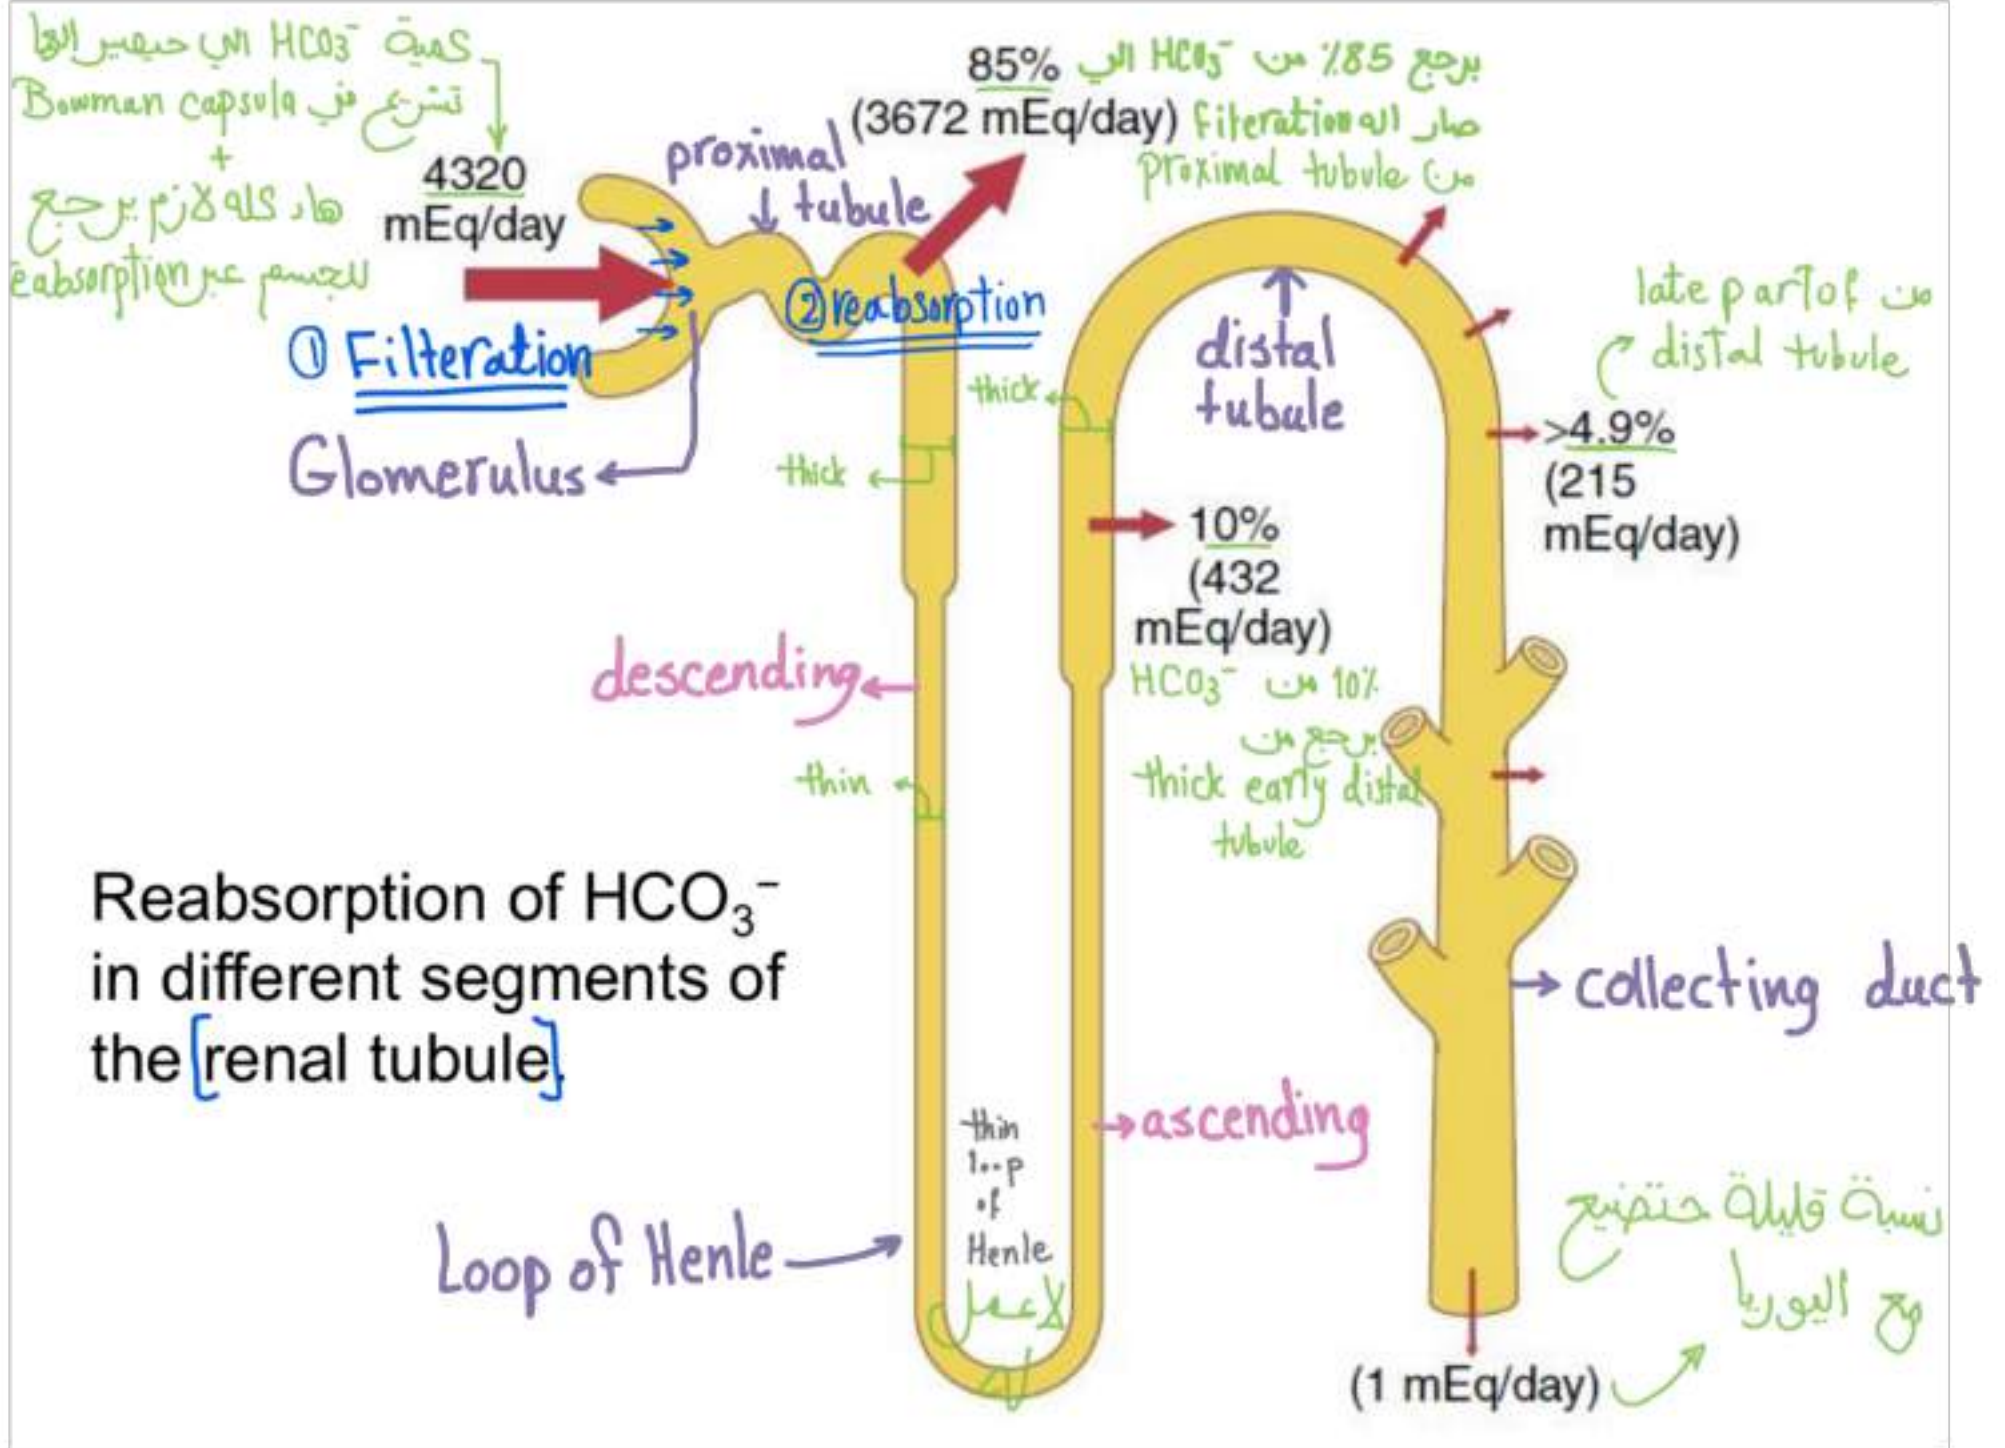 كمية HCO₃⁻ الي حيصير الها
ترشيح في Bowman capsula
+
هاد كله لازم يرجع
للجسم عبر eabsorption
4320
mEq/day
① Filteration
Glomerulus
proximal
tubule
② reabsorption
85%
(3672 mEq/day)
برجع 85٪ من HCO₃⁻ الي
صار اله Filteration
من proximal tubule
thick
thick
distal
tubule
من late part of
distal tubule
>4.9%
(215
mEq/day)
10%
(432
mEq/day)
10٪ من HCO₃⁻
يرجع من
thick early distal
tubule
descending
thin
Reabsorption of HCO₃⁻
in different segments of
the [renal tubule].
collecting duct
ascending
thin
loop
of
Henle
Loop of Henle
نسبة قليلة حتضيع
مع اليوريا
(1 mEq/day)